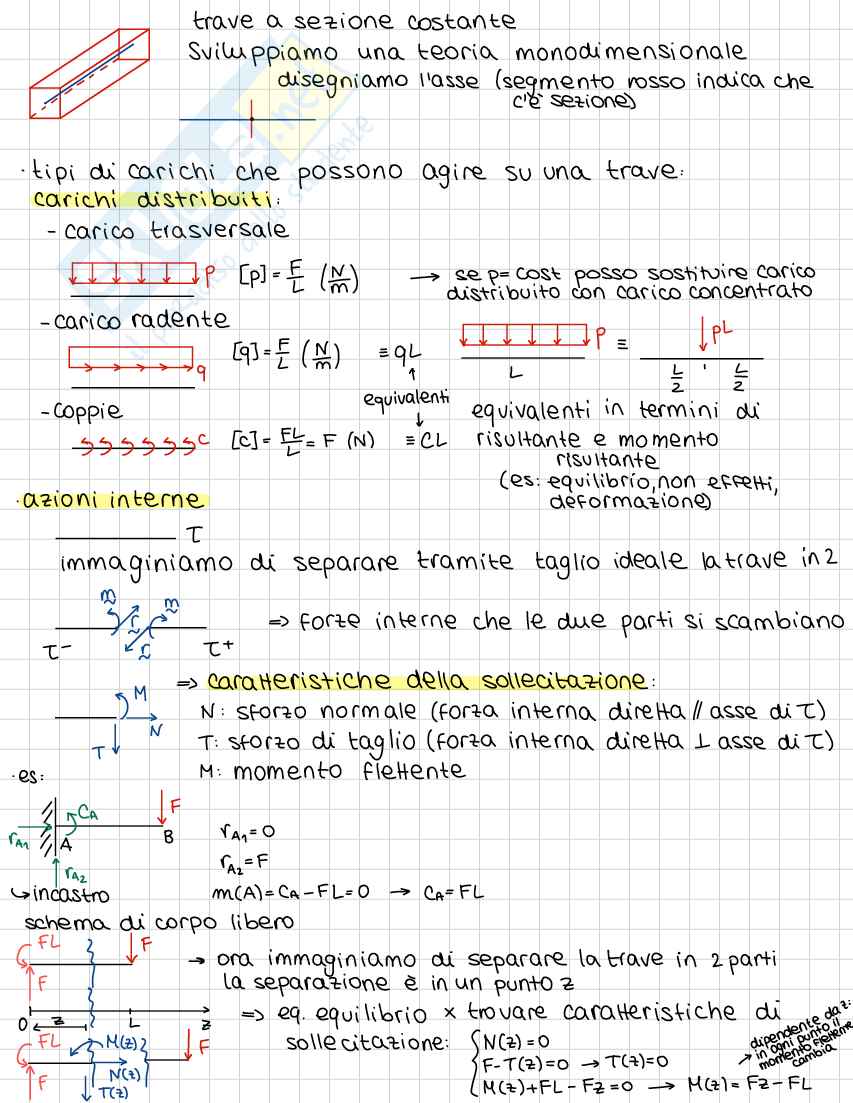 trave a sezione costante
Sviluppiamo una teoria monodimensionale
disegniamo l'asse (segmento rosso indica che
c'è sezione)
· tipi di carichi che possono agire su una trave:
carichi distribuiti:
- carico trasversale
p [p] = F/L (N/m) → se p = cost posso sostituire carico
distribuito con carico concentrato
- carico radente
q [q] = F/L (N/m) ≡ qL
p ≡ pL
L L/2 L/2
equivalenti
- coppie
c [c] = FL/L = F (N) ≡ CL
equivalenti in termini di
risultante e momento
risultante
(es: equilibrio, non effetti,
deformazione)
· azioni interne
τ
immaginiamo di separare tramite taglio ideale la trave in 2
m r r m
τ- τ+
⇒ forze interne che le due parti si scambiano
⇒ caratteristiche della sollecitazione:
M N T
N: sforzo normale (forza interna diretta // asse di τ)
T: sforzo di taglio (forza interna diretta ⊥ asse di τ)
M: momento flettente
· es:
CA F
rA1 A B
rA2
rA1 = 0
rA2 = F
m(A) = CA - FL = 0 → CA = FL
↳ incastro
schema di corpo libero
FL F
F
→ ora immaginiamo di separare la trave in 2 parti
la separazione è in un punto z
O z L z
⇒ eq. equilibrio x trovare caratteristiche di
sollecitazione:
FL M(z) F
F N(z)
T(z)
N(z) = 0
F - T(z) = 0 → T(z) = 0
M(z) + FL - Fz = 0 → M(z) = Fz - FL
→ dipendente da z:
in ogni punto il
momento flettente
cambia